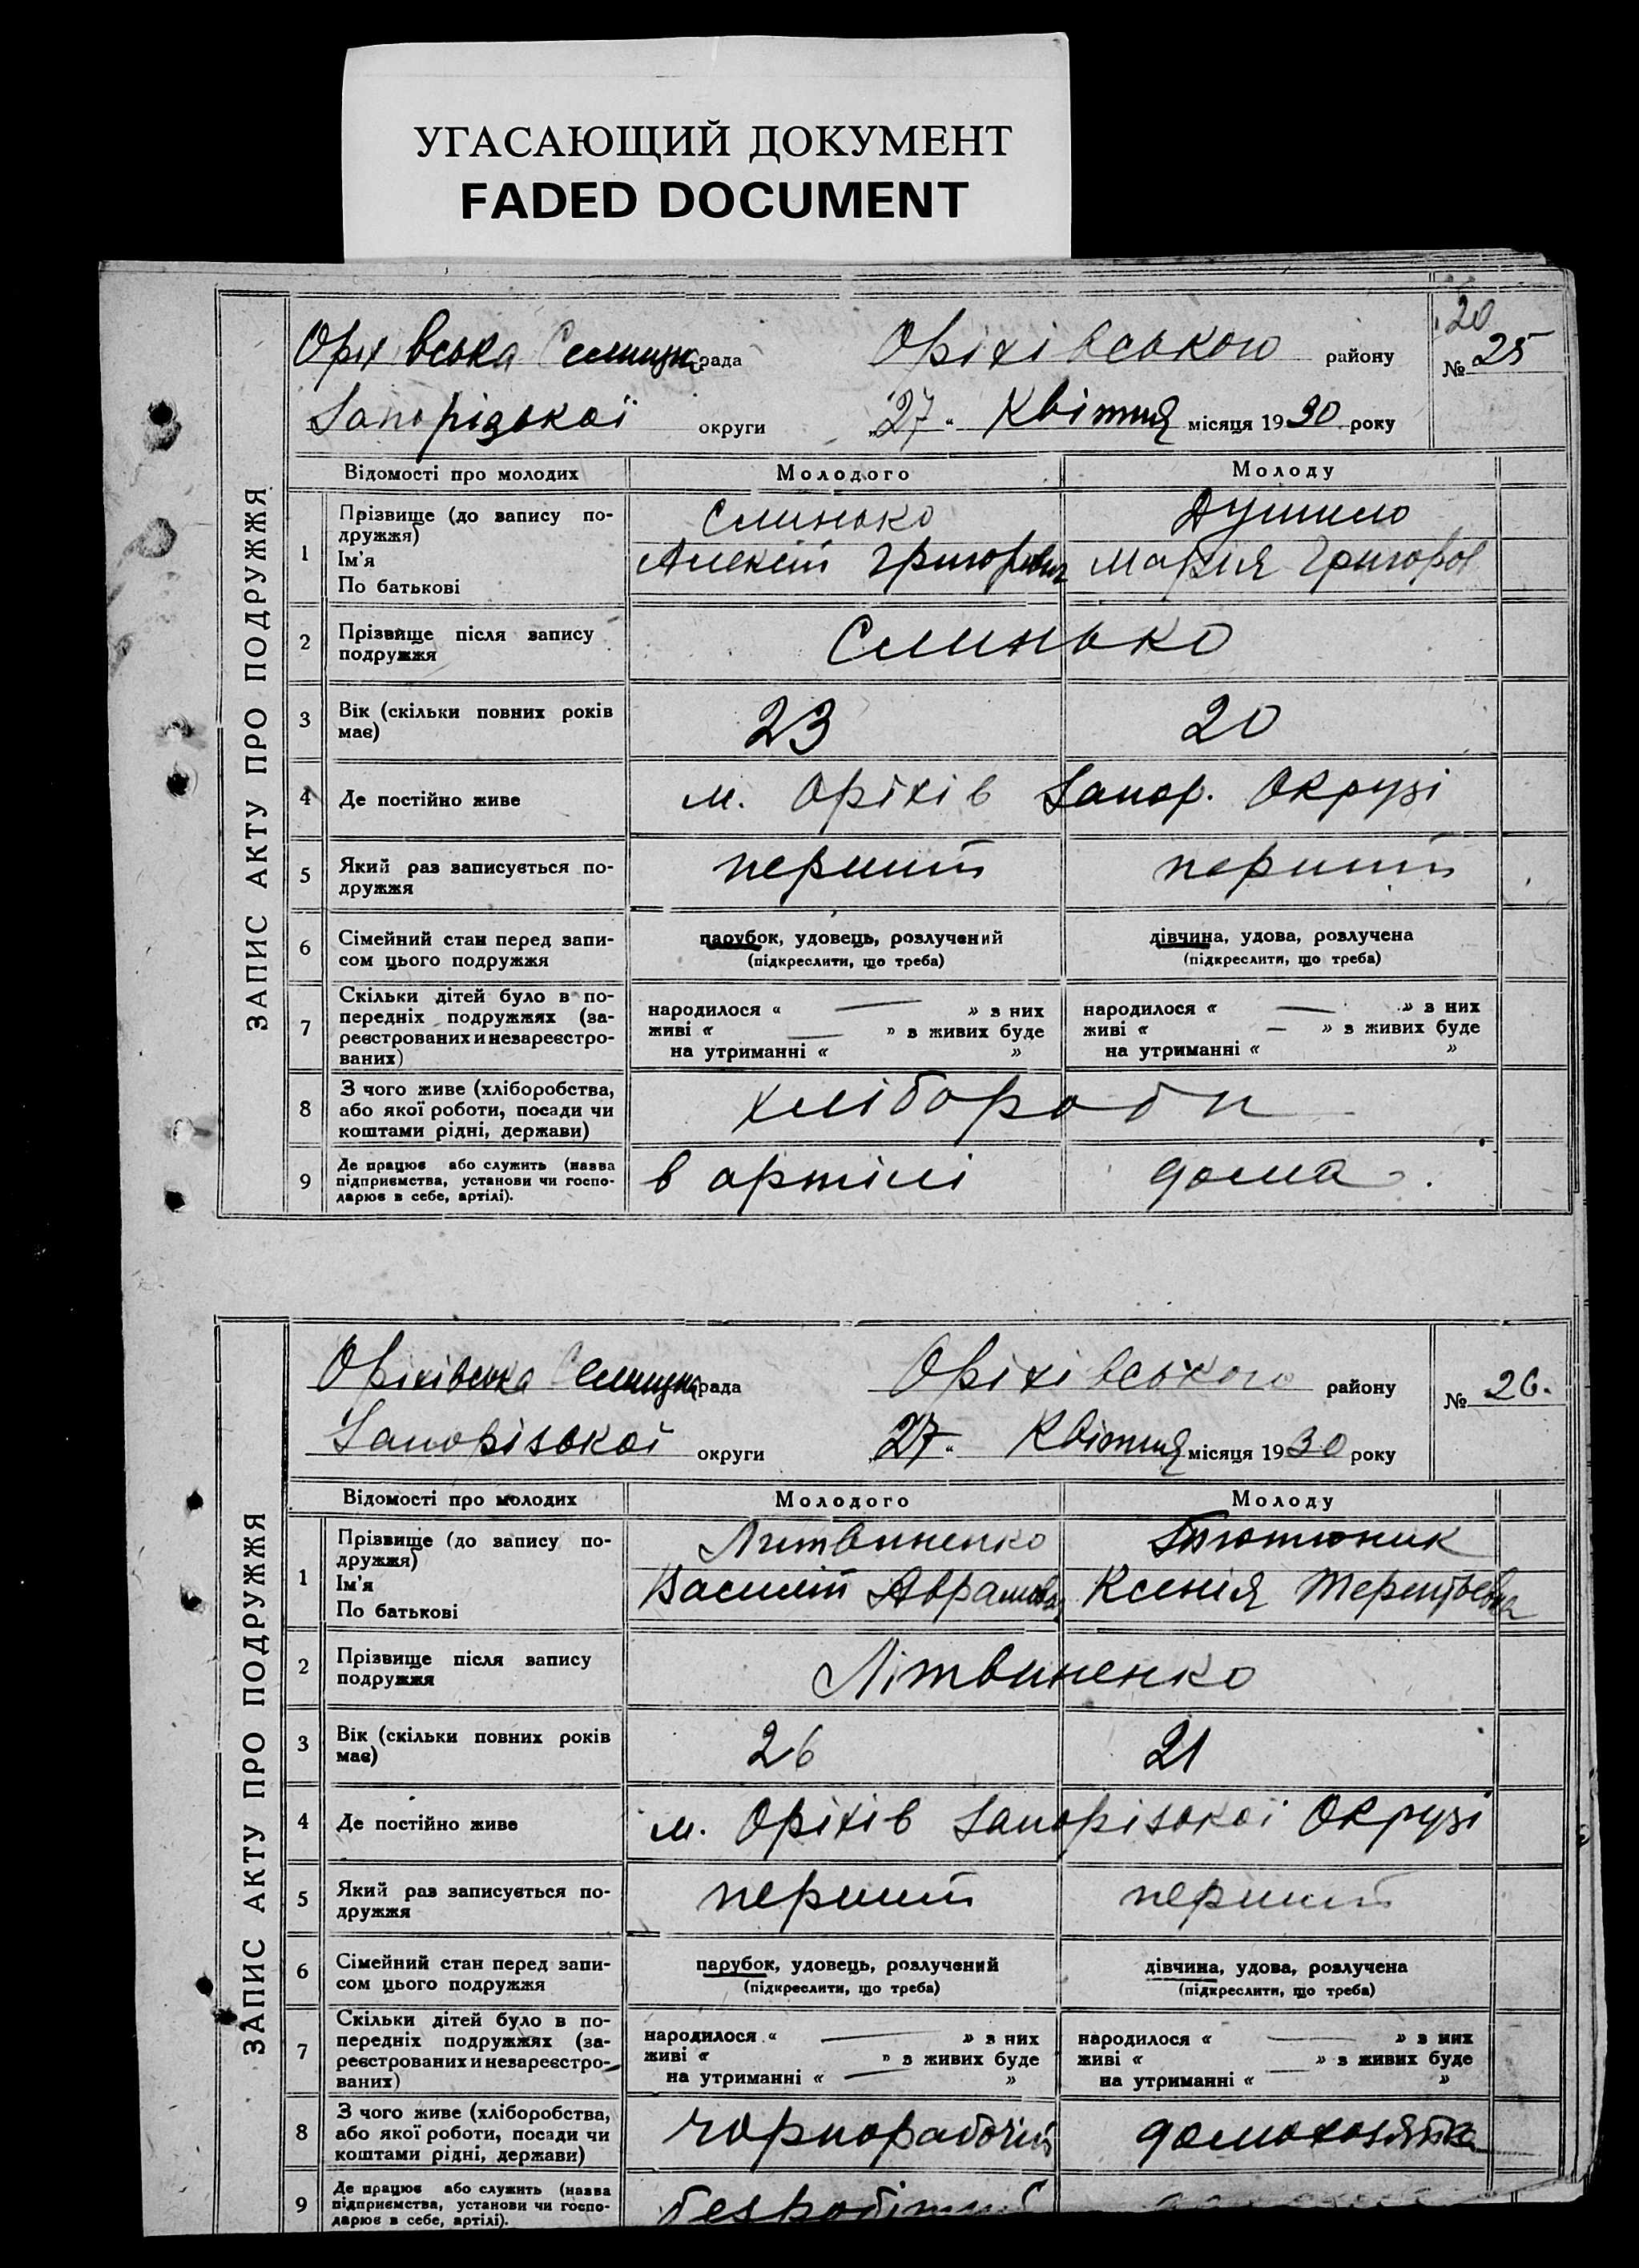 УГАСАЮЩИЙ ДОКУМЕНТ
FADED DOCUMENT
ЗАПИС АКТУ ПРО ПОДРУЖЖЯ
20
Оріхівська Селищна рада Оріхівського району № 25
Запорізької округи „27“ Квітня місяця 1930 року
Відомості про молодих Молодого Молоду
1 Прізвище (до запису по-
дружжя)
Ім'я
По батькові
Слинько
Алексій Григорович
Мария Григоров
2 Прізвище після запису
подружжя
Слинько
3 Вік (скільки повних років
має)
23 20
4 Де постійно живе м. Оріхів Запор. Окрузі
5 Який раз записується по-
дружжя
перший перший
6 Сімейний стан перед запи-
сом цього подружжя
парубок, удовець, розлучений
(підкреслити, що треба)
дівчина, удова, розлучена
(підкреслити, що треба)
7 Скільки дітей було в по-
передніх подружжях (за-
реєстрованих и незареєстро-
ваних)
народилося « — » з них
живі « — » з живих буде
на утриманні « »
народилося « — » з них
живі « — » з живих буде
на утриманні « »
8 З чого живе (хліборобства,
або якої роботи, посади чи
коштами рідні, держави)
хлібороби
9 Де працює або служить (назва
підприємства, установи чи госпо-
дарює в себе, артілі).
в артілі дома.
ЗАПИС АКТУ ПРО ПОДРУЖЖЯ
Оріхівська Селищна рада Оріхівського району № 26.
Запорізької округи „27“ Квітня місяця 1930 року
Відомості про молодих Молодого Молоду
1 Прізвище (до запису по-
дружжя)
Ім'я
По батькові
Литвиненко Тютюник
Василий Аврамов Ксенія Терентьевна
2 Прізвище після запису
подружжя
Літвиненко
3 Вік (скільки повних років
має)
26 21
4 Де постійно живе м. Оріхів Запорізької Окрузі
5 Який раз записується по-
дружжя
перший перший
6 Сімейний стан перед запи-
сом цього подружжя
парубок, удовець, розлучений
(підкреслити, що треба)
дівчина, удова, розлучена
(підкреслити, що треба)
7 Скільки дітей було в по-
передніх подружжях (за-
реєстрованих и незареєстро-
ваних)
народилося « — » з них
живі « » з живих буде
на утриманні « — »
народилося « — » з них
живі « — » з живих буде
на утриманні « »
8 З чого живе (хліборобства,
або якої роботи, посади чи
коштами рідні, держави)
чорнорабочий домохозяйка
9 Де працює або служить (назва
підприємства, установи чи госпо-
дарює в себе, артілі).
безробітний